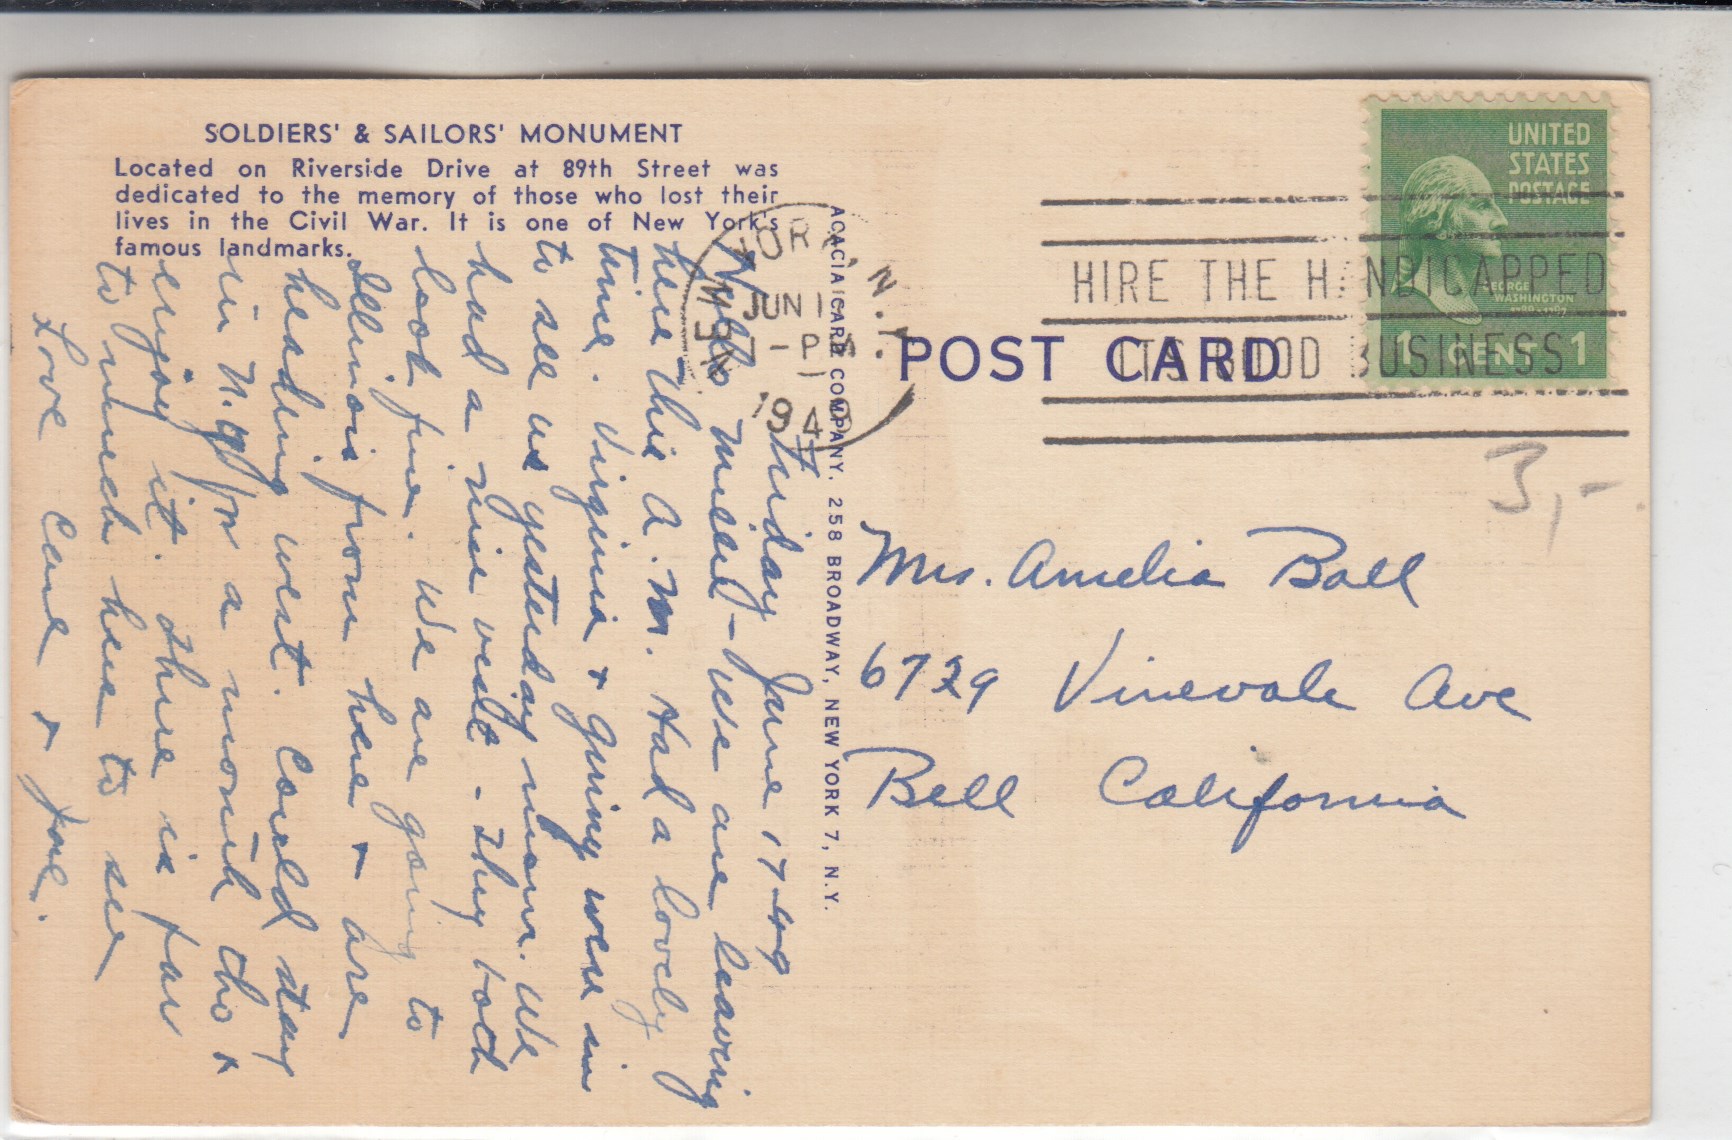 SOLDIERS' & SAILORS' MONUMENT
Located on Riverside Drive at 89th Street was
dedicated to the memory of those who lost their
lives in the Civil War. It is one of New York's
famous landmarks.
Friday June 17-49
Hello - We are leaving
here this A.M. Had a lovely
time. Virginia + were in
to see us yesterday noon. We
had a nice visit - They both
look fine. We are going to
Illinois from here + are
heading west. Could stay
in N.Y. for a month tho +
enjoy it. There is far
to much here to see
Love +
ACACIA CARD COMPANY, 258 BROADWAY, NEW YORK 7, N.Y.
POST CARD
NEW YORK, N.Y.
JUN 1
7 - PM
1949
HIRE THE HANDICAPPED
ITS GOOD BUSINESS
UNITED
STATES
POSTAGE
GEORGE
WASHINGTON
1 CENT 1
3,-
Mrs. Amelia Ball
6729 Vinevale Ave
Bell California